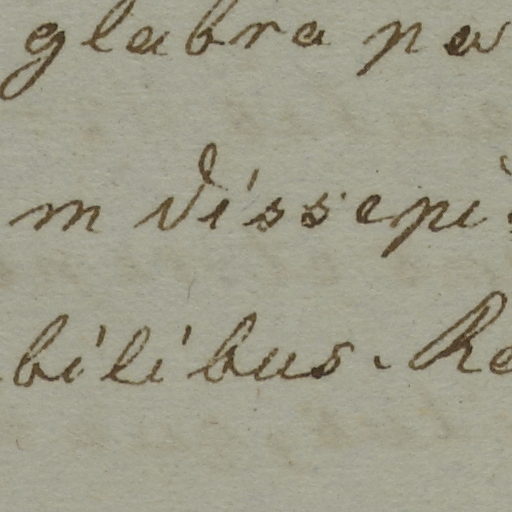 glabra pa
m dissepi
bilibus. Re